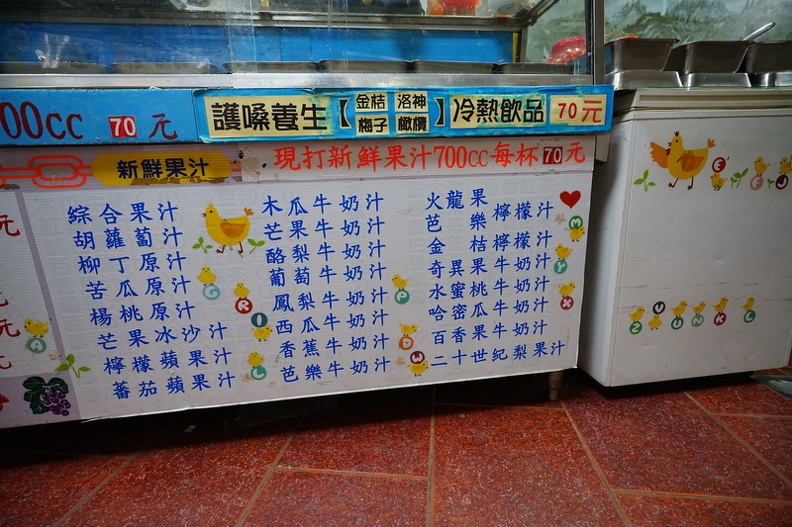 00cc 70 元
護嗓養生【金桔 洛神 梅子 橄欖】冷熱飲品 70元
新鮮果汁
現打新鮮果汁700cc每杯70元
綜合果汁
胡蘿蔔汁
柳丁原汁
苦瓜原汁
楊桃原汁
芒果冰沙汁
檸檬蘋果汁
蕃茄蘋果汁
木瓜牛奶汁
芒果牛奶汁
酪梨牛奶汁
葡萄牛奶汁
鳳梨牛奶汁
西瓜牛奶汁
香蕉牛奶汁
芭樂牛奶汁
火龍果
芭樂檸檬汁
金桔檸檬汁
奇異果牛奶汁
水蜜桃牛奶汁
哈密瓜牛奶汁
百香果牛奶汁
二十世紀梨果汁
元
元
元